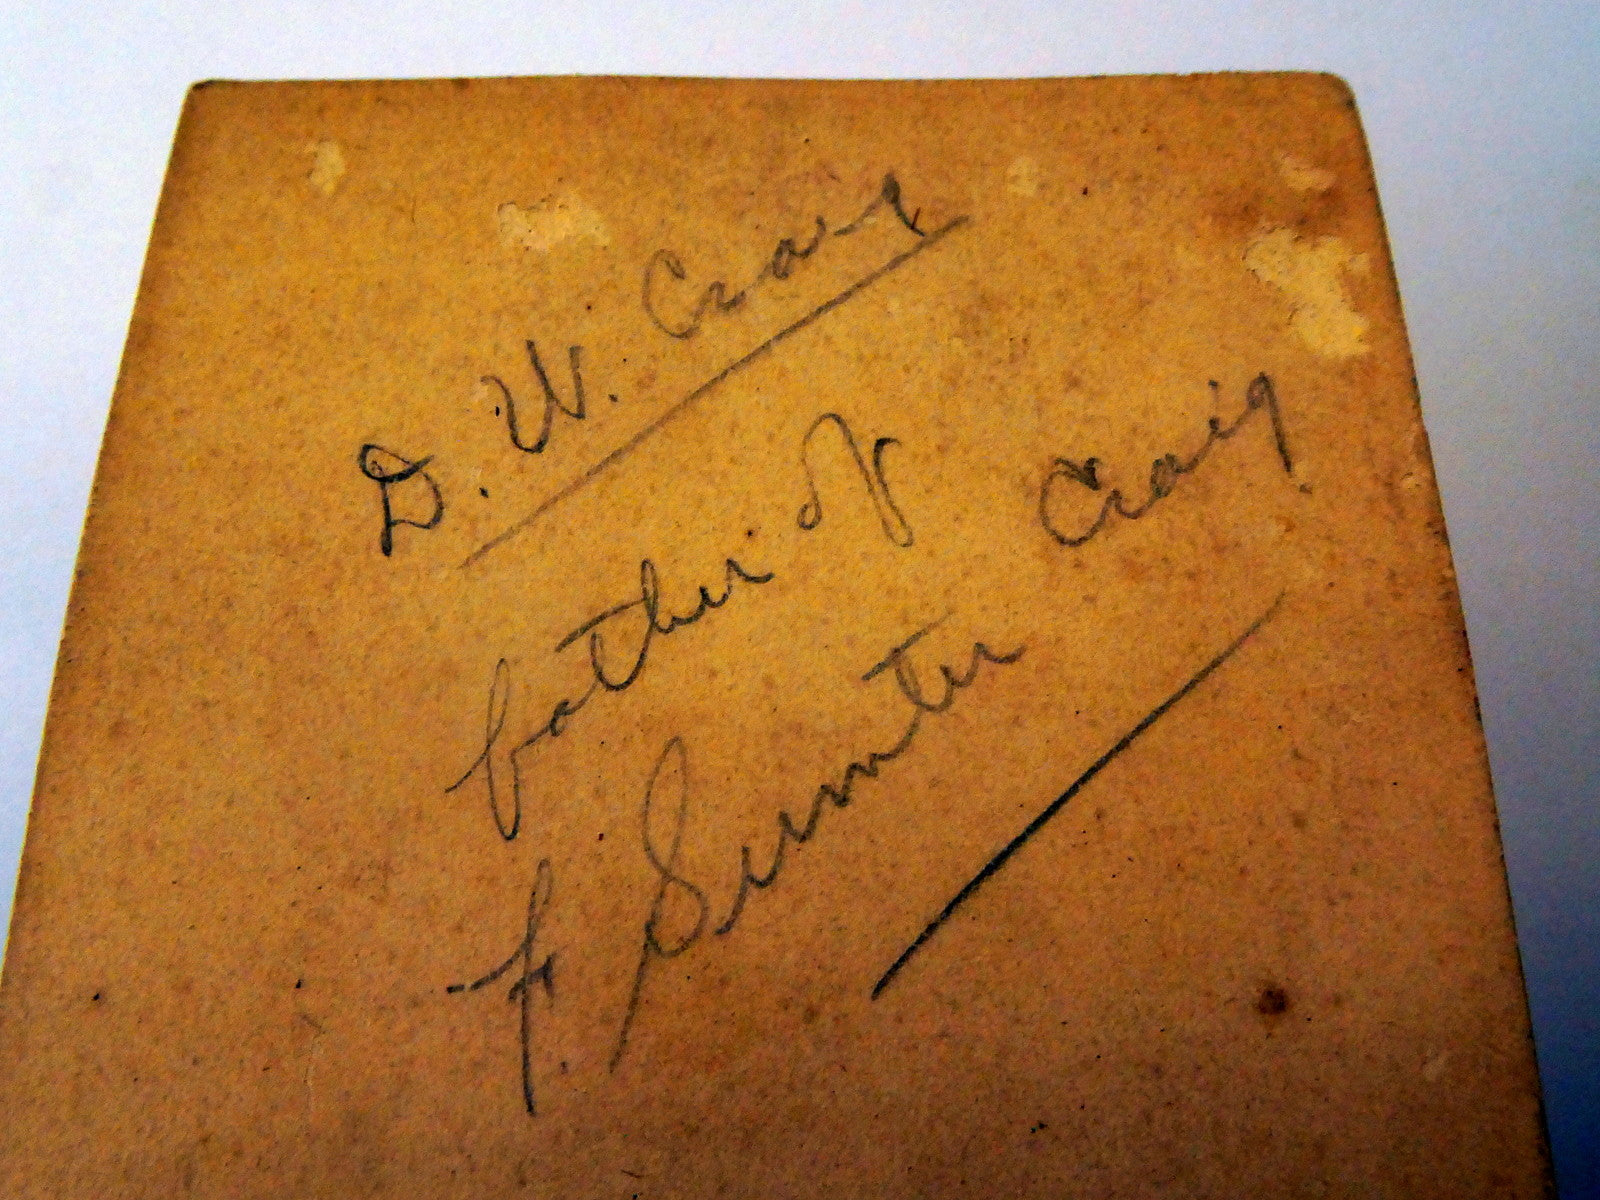 D. W. Craig
father of
F. Sumter Craig